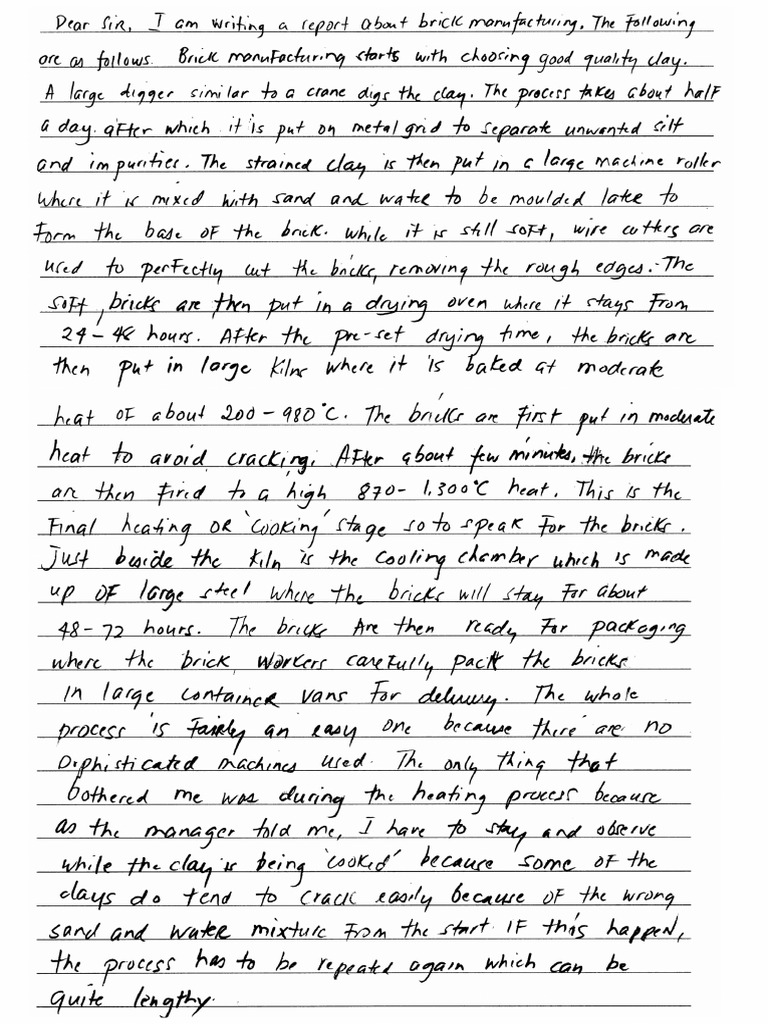 Dear Sir, I am writing a report about brick manufacturing. The following
are as follows. Brick manufacturing starts with choosing good quality clay.
A large digger similar to a crane digs the clay. The process takes about half
a day. after which it is put on metal grid to separate unwanted silt
and impurities. The strained clay is then put in a large machine roller
where it is mixed with sand and water to be moulded later to
form the base of the brick. While it is still soft, wire cutters are
used to perfectly cut the bricks, removing the rough edges. The
soft, bricks are then put in a drying oven where it stays from
24-48 hours. After the pre-set drying time, the bricks are
then put in large kilns where it is baked at moderate
heat of about 200-980°C. The bricks are first put in moderate
heat to avoid cracking. After about few minutes, the bricks
are then fired to a high 870-1,300°C heat. This is the
final heating or 'cooking' stage so to speak for the bricks.
Just beside the kiln is the cooling chamber which is made
up of large steel where the bricks will stay for about
48-72 hours. The bricks are then ready for packaging
where the brick workers carefully pack the bricks
in large container vans for delivery. The whole
process is fairly an easy one because there are no
sophisticated machines used. The only thing that
bothered me was during the heating process because
as the manager told me, I have to stay and observe
while the clay is being 'cooked' because some of the
clays do tend to crack easily because of the wrong
sand and water mixture from the start. If this happen,
the process has to be repeated again which can be
quite lengthy.